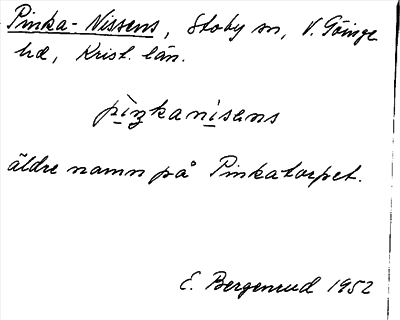 Pinka-Nissens, Stoby sn, V. Göinge
hd, Krist. län.
pìŋkanisens
äldre namn på Pinkatorpet.
E. Bergenrud 1952